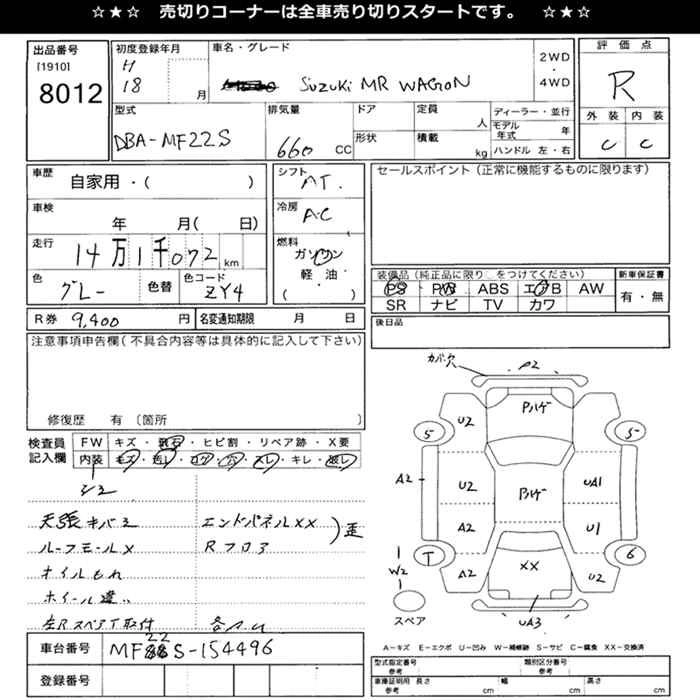 ☆★☆ 売切りコーナーは全車売り切りスタートです。 ☆★☆
出品番号
[1910]
8012
初度登録年月
H
18
月
車名・グレード
SUZUKI MR WAGON
2WD
・
4WD
評価点
R
外装 内装
C C
型式
DBA-MF22S
排気量
660 CC
ドア
形状
定員
人
積載
kg
ディーラー・並行
モデル年式 年
ハンドル 左・右
車歴
自家用・( )
車検
年 月( 日)
走行
14万1千072 km
色
グレー
色替
色コード
ZY4
シフト
AT.
冷房
AC
燃料
ガソリン
軽・油
( )
セールスポイント(正常に機能するものに限ります)
装備品(純正品に限り○をつけてください)
PS PW ABS エアB AW
SR ナビ TV カワ
新車保証書
有・無
R券 9,400 円
名変通知期限 月 日
後日品
注意事項申告欄(不具合内容等は具体的に記入して下さい)
修復歴 有〔箇所
検査員
記入欄
FW キズ・飛石・ヒビ割・リペア跡・X要
内装 キズ・色し・コゲ・穴・スレ・キレ・破レ
天張キバミ
エンドパネルXX
歪
ルーフモールX
Rフロア
オイルもれ
ホイール違い
左Rスペア取付
車台番号
22
MF S-154496
登録番号
カバー穴
A2
U2
Pハゲ
5
5
A2
U2
Pハゲ
UA1
A2
U1
T
6
W2
A2
XX
U2
スペア
UA3
A-キズ E-エクボ U-凹み W-補修跡 S-サビ C-腐食 XX-交換済
型式指定番号
参考
類別区分番号
参考
車庫証明用 長さ
参考 cm
幅
cm
高さ
cm